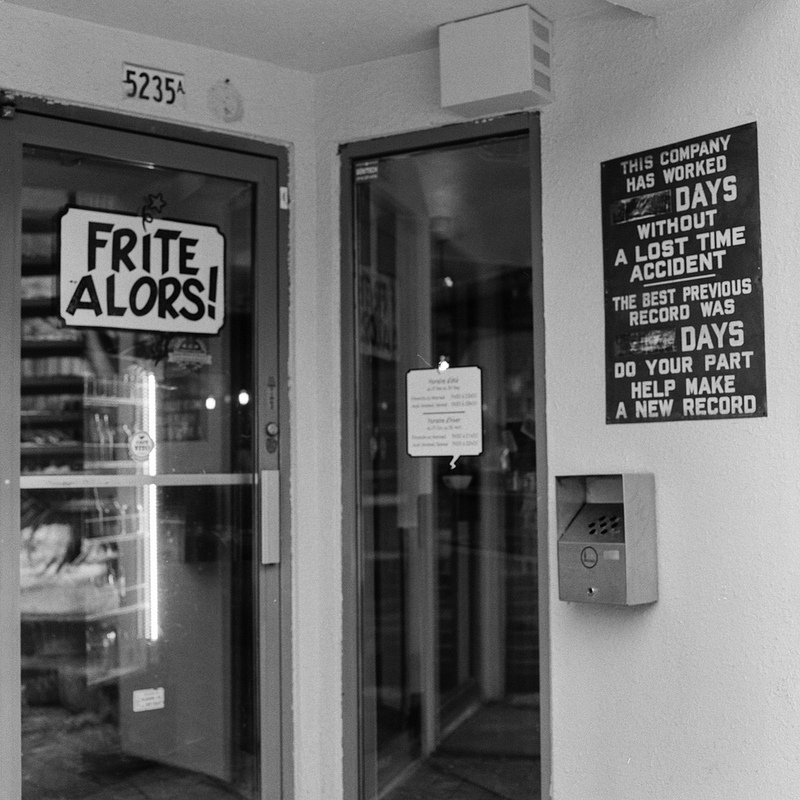 5235A
FRITE
ALORS!
Horaire d'été
Horaire d'hiver
THIS COMPANY
HAS WORKED
DAYS
WITHOUT
A LOST TIME
ACCIDENT
THE BEST PREVIOUS
RECORD WAS
DAYS
DO YOUR PART
HELP MAKE
A NEW RECORD